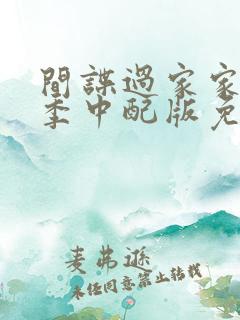 間諜過家家
季中配版免
麦弗逊
未经同意禁止转载